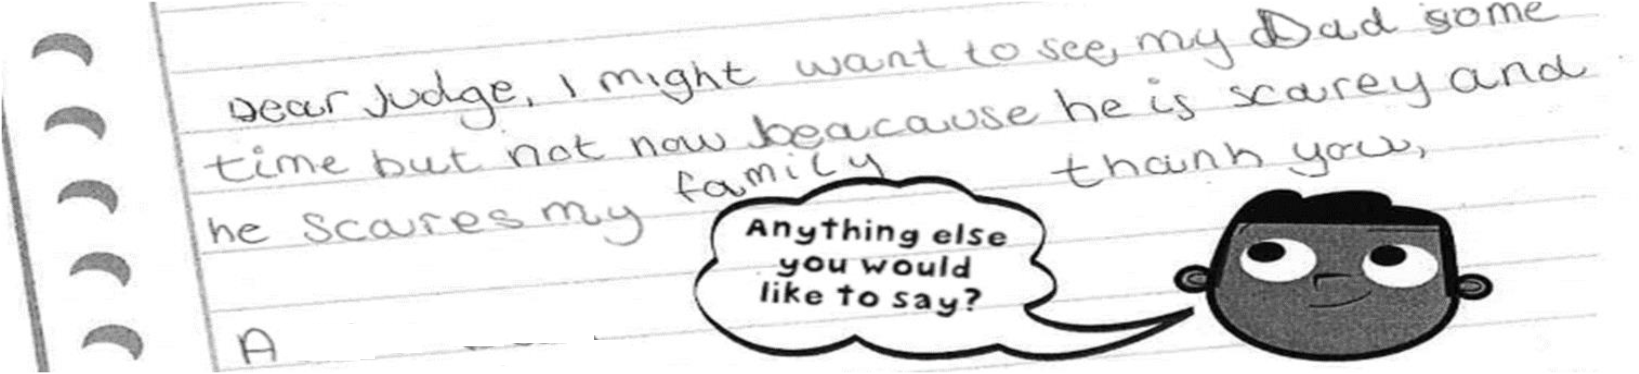 Dear Judge, I might want to see my Dad some
time but not now beacause he is scarey and
he scares my family thank you,
Anything else
you would
like to say?
A